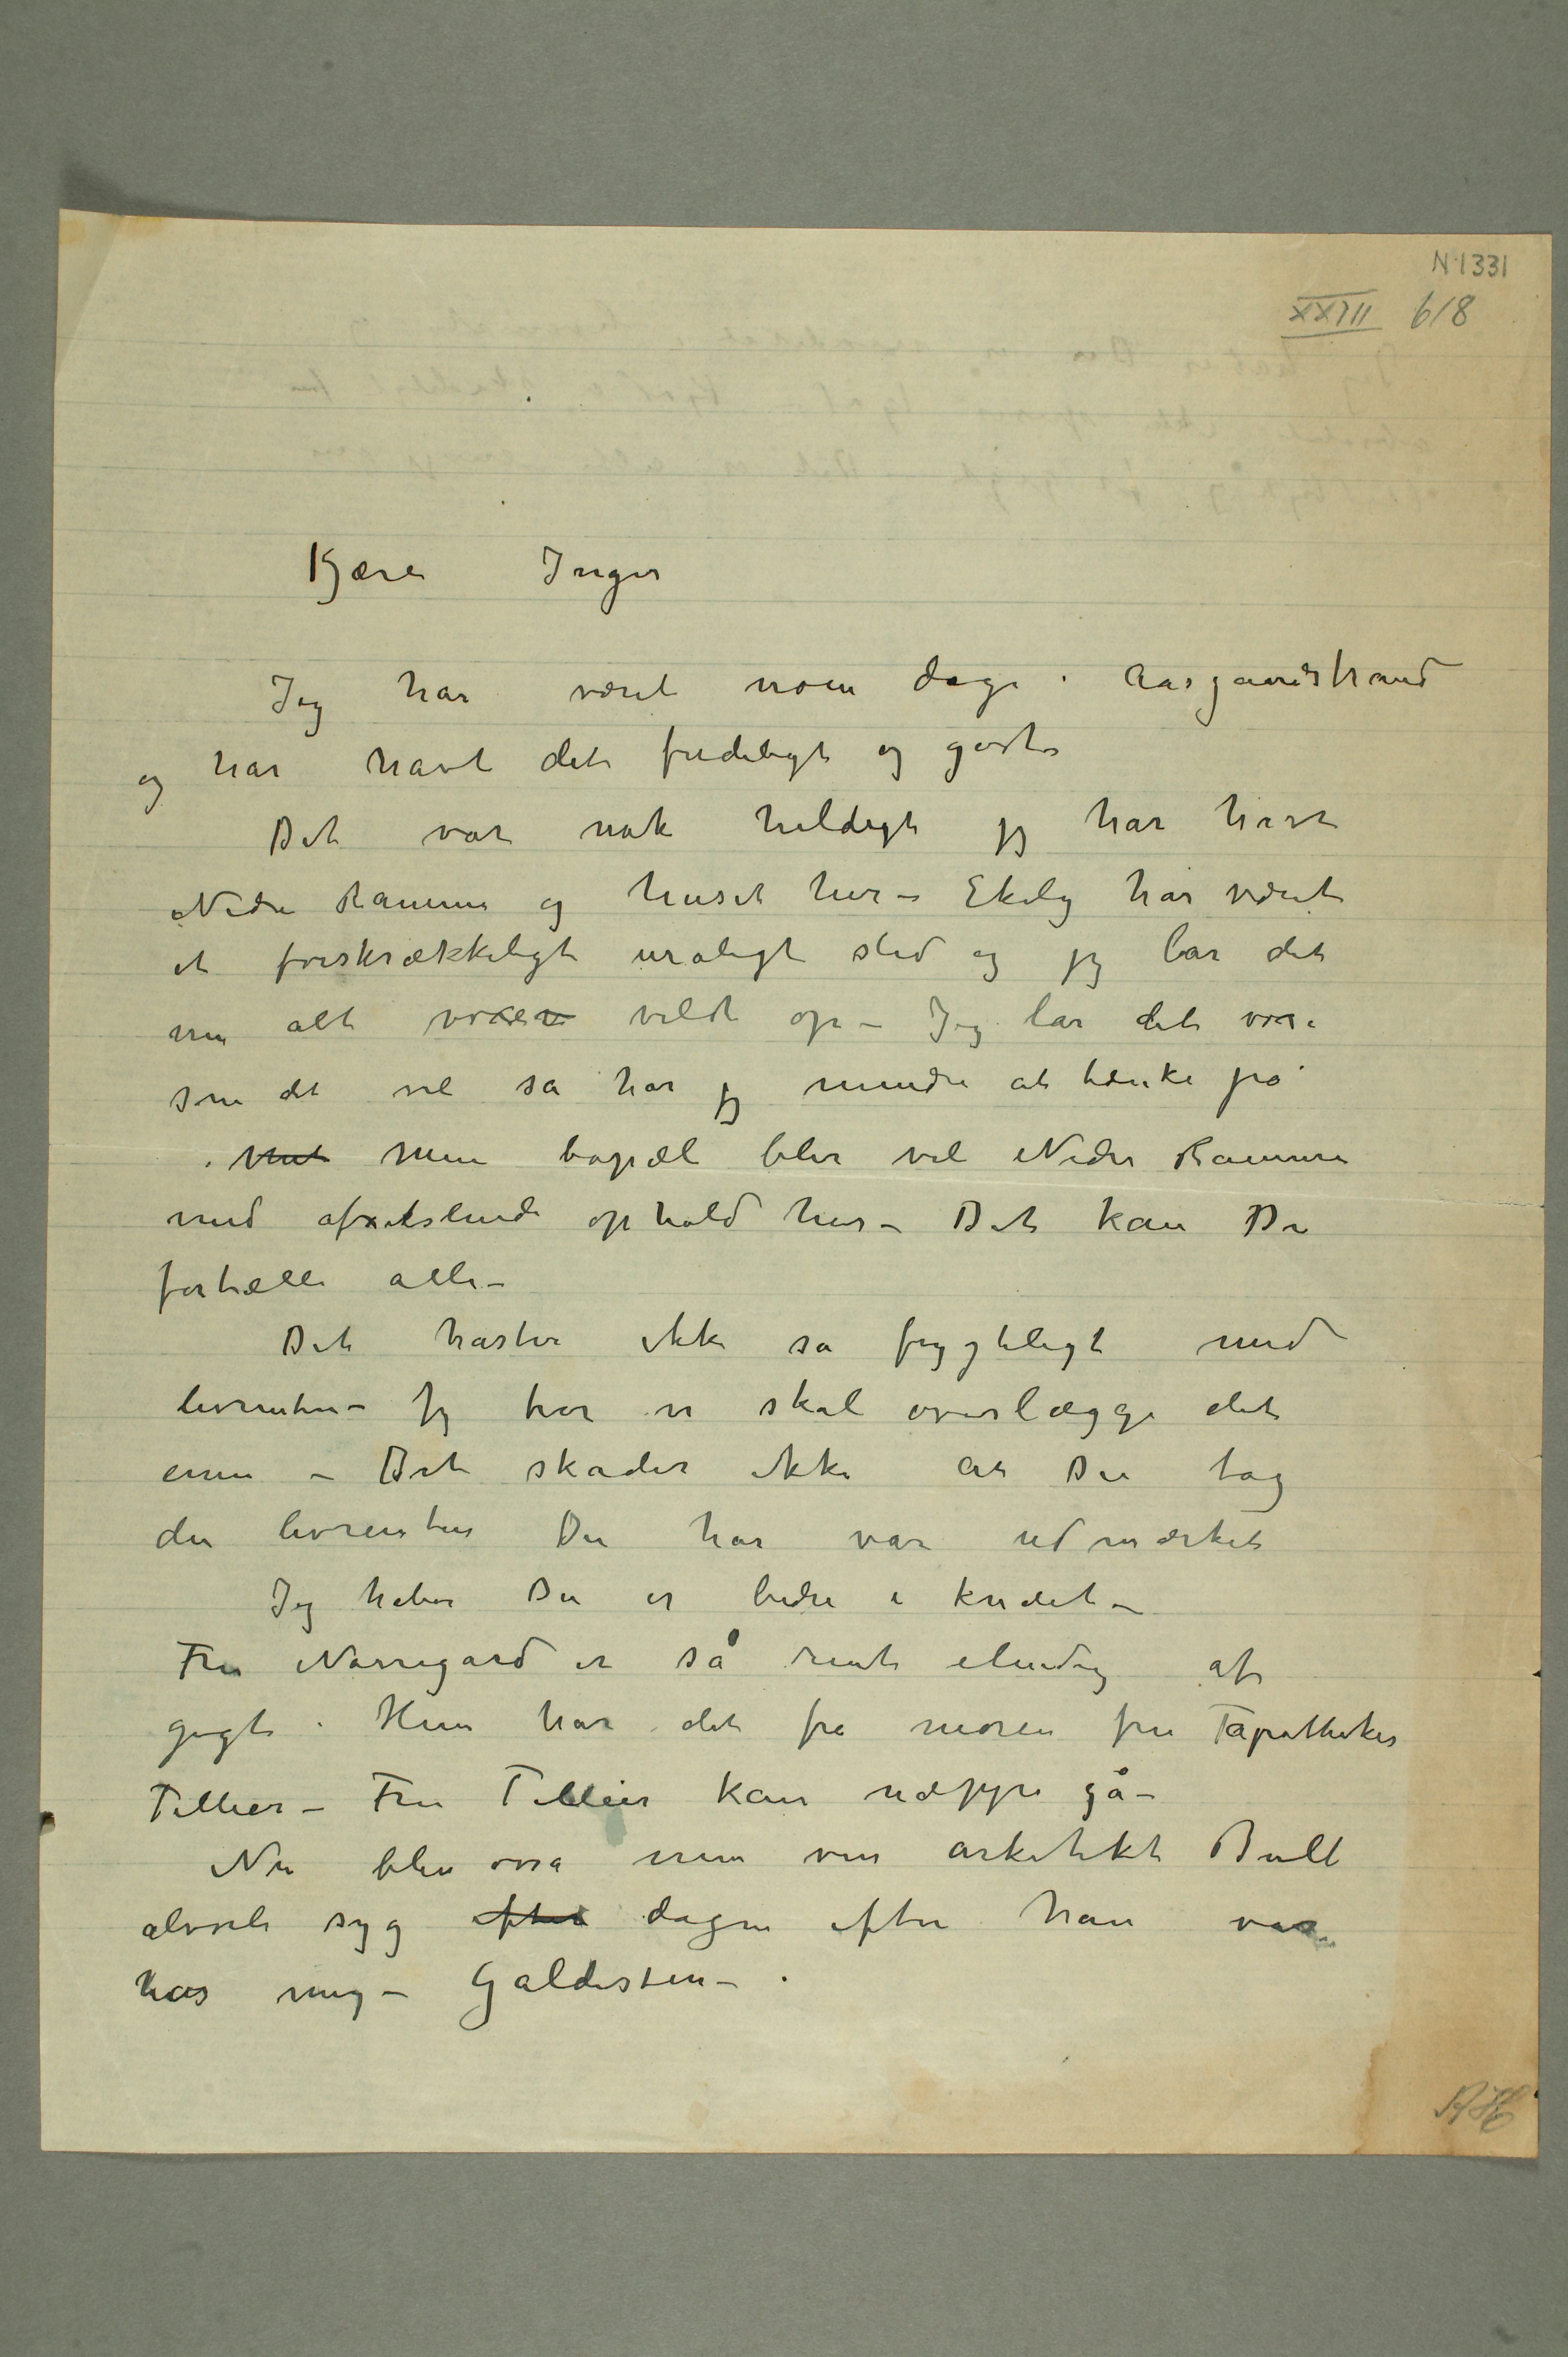 N 1331
XXIII 618
Kjære Inger
Jeg har været noen dage i Aasgaardstrand
og har havt det fredeligt og godt
Det var nok heldigt jeg har havt
Nedre Ramme og huset her – Ekely har været
et forskrækkeligt uroligt sted og jeg lar det
nu alt voxer vildt op – Jeg lar det være
som det vil så har jeg mindre at tænke på
Mit Min bopæl blir vel Nedre Ramme
med afvekslende ophold her – Det kan Du
fortælle alle –
Det haster ikke så frygteligt med
livrenten – Jeg tror vi skal overlægge det
ennu – Det skader ikke at Du tog
den livrenten Du har var udmærket
Jeg håber Du er bedre i knæet –
Fru Nørregård er så rent elendig af
gigt. Hun har det fra moren fru Tapotheker
Tellier – Fru Tellier kan næppe gå –
Nu blev også min ven arkitekt Bull
alvorli syg efter dagen efter han var
hos mig – Galdesten –